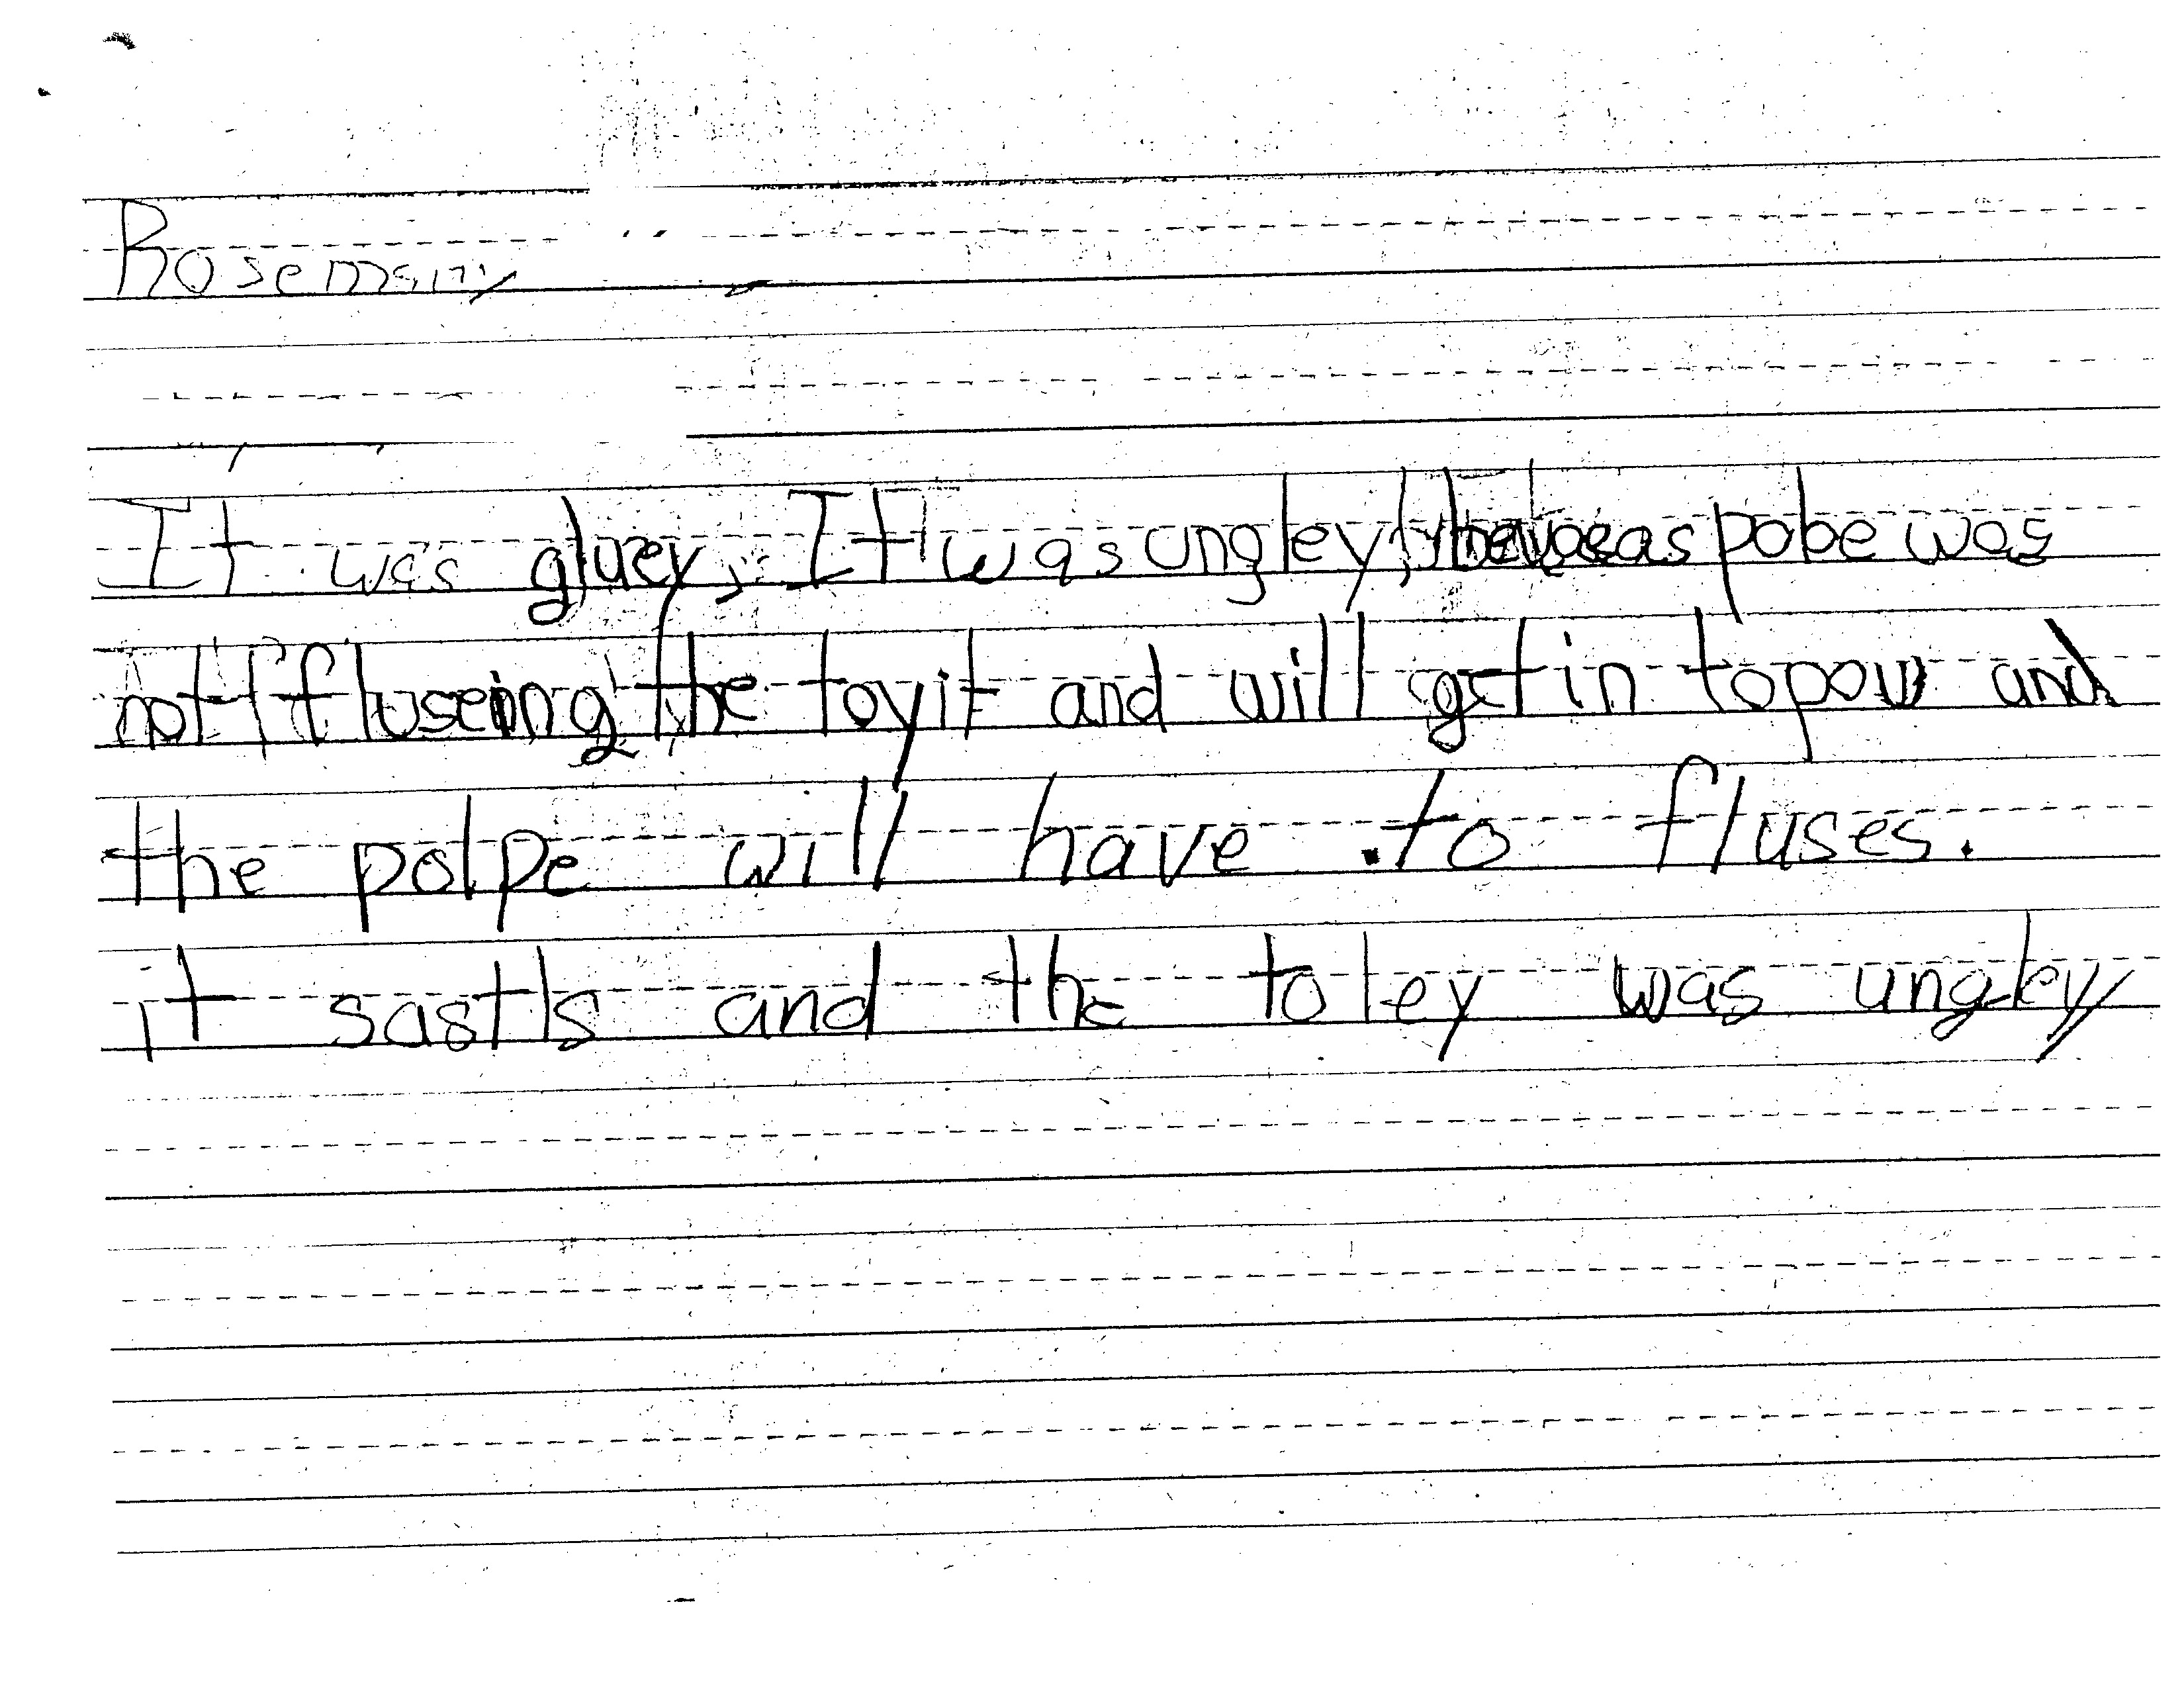 Rosemary
It was gluey, It was ungley, pobe was
not fluseing the toyit and will get in to pow and
the polpe will have to fluses.
it sastls and the toley was ungley